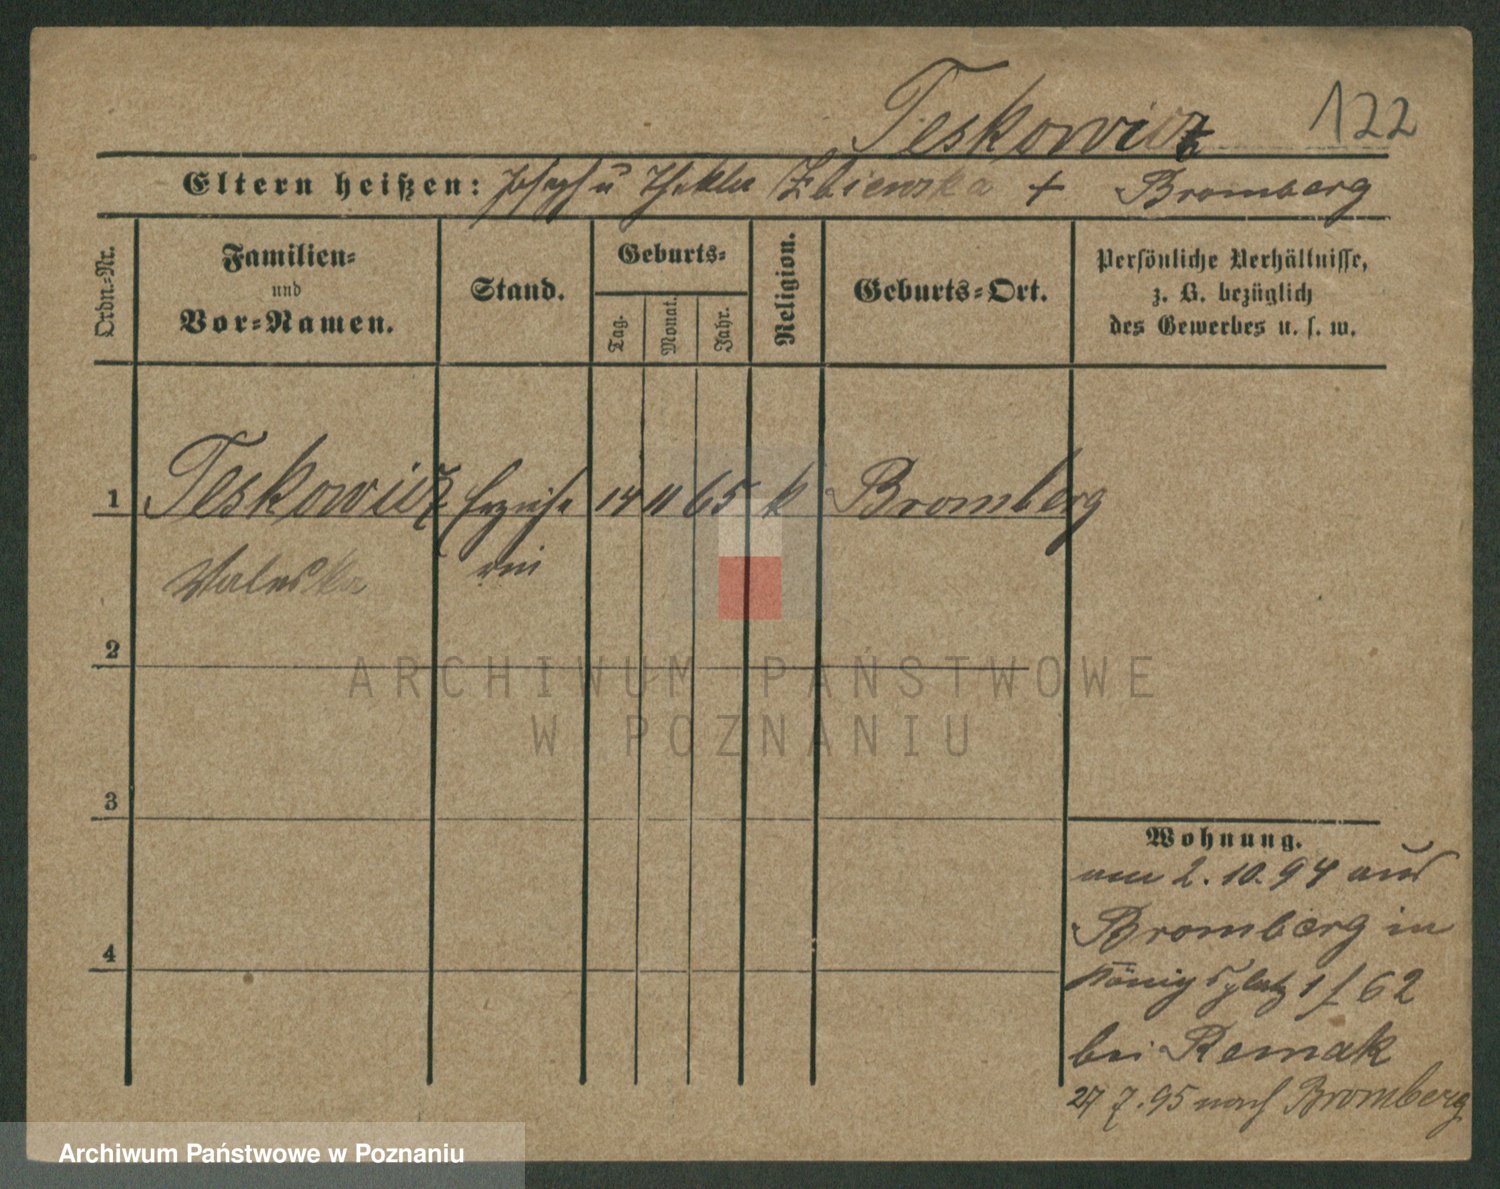 Teskowicz 122
Eltern heißen: Joseph u Thekla Zbierska + Bromberg
Ordn.=Nr.
Familien=
und
Vor=Namen.
Stand.
Geburts=
Tag.
Monat.
Jahr.
Religion.
Geburts=Ort.
Persönliche Verhältnisse,
z. B. bezüglich
des Gewerbes u. s. w.
1 Teskowicz Erziehe 14 11 65 k Bromberg
Valeska rin
2
3
4
Wohnung.
am 2. 10. 94 aus
Bromberg in
Königsplatz 1/62
bei Remak
27 7. 95 nach Bromberg
ARCHIWUM PAŃSTWOWE
W POZNANIU
Archiwum Państwowe w Poznaniu